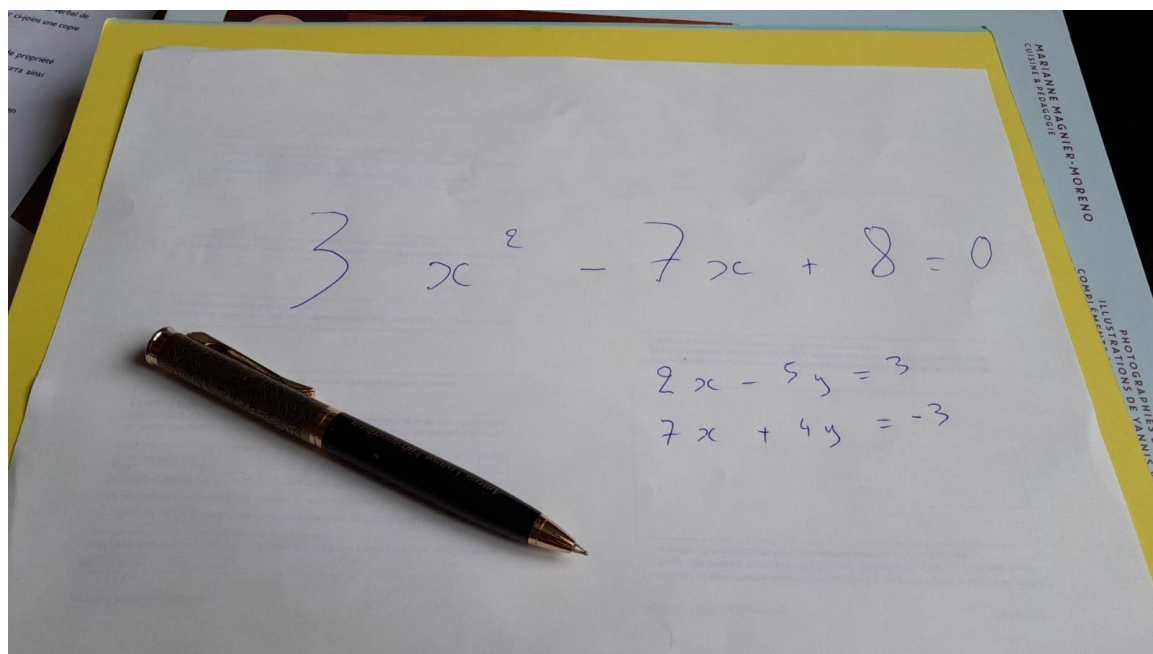 verbal de
r ci-joint une copie
de propriété
rra ainsi
en
3 x² - 7x + 8 = 0
2x - 5y = 3
7x + 4y = -3
MARIANNE MAGNIER-MORENO
CUISINE & PÉDAGOGIE
PHOTOGRAPHIES
ILLUSTRATIONS DE YANNIS